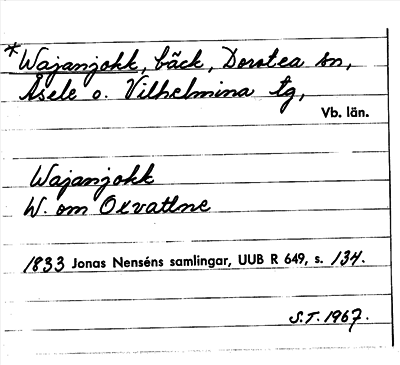 *Wajanjokk, bäck, Dorotea sn,
Åsele o. Vilhelmina tg,
Vb. län.
Wajanjokk
W. om Oxvattne
1833 Jonas Nenséns samlingar, UUB R 649, s. 134.
S.T. 1967.